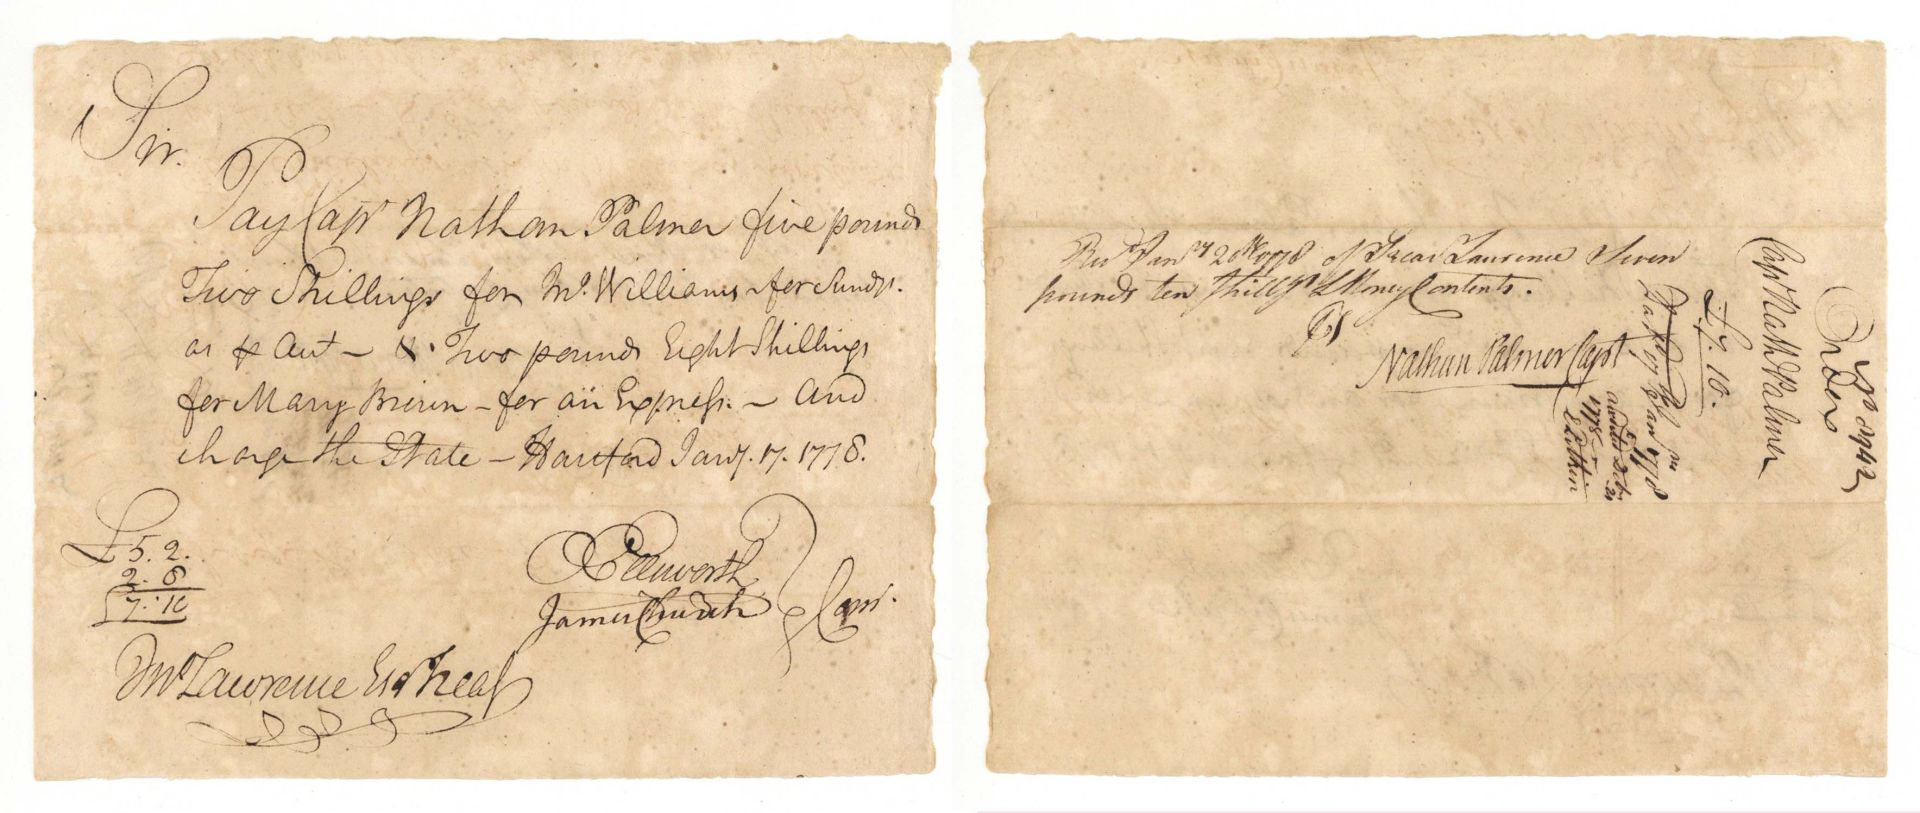 Sir.
Pay Capt Nathan Palmer five pounds
Two Shillings for Mr. Williams for Sundys.
as ⅌ Acct – & Two pounds Eight Shillings
for Mary – for an Express. – And
charge the State – Hartford Jany. 17. 1778.
£5. 2.
2. 8
£7. 10
OEllsworth
James Church
Com.
Jno Lawrence Esqr Treasr
Recd Jany 20th 1778 of Treas Laurence Seven
pounds ten Shillgs L Money Contents.
Pr
Nathan Palmer Capt
No 2942
Order
Capt Nath Palmer
£7. 10.
Jany 1778
1778